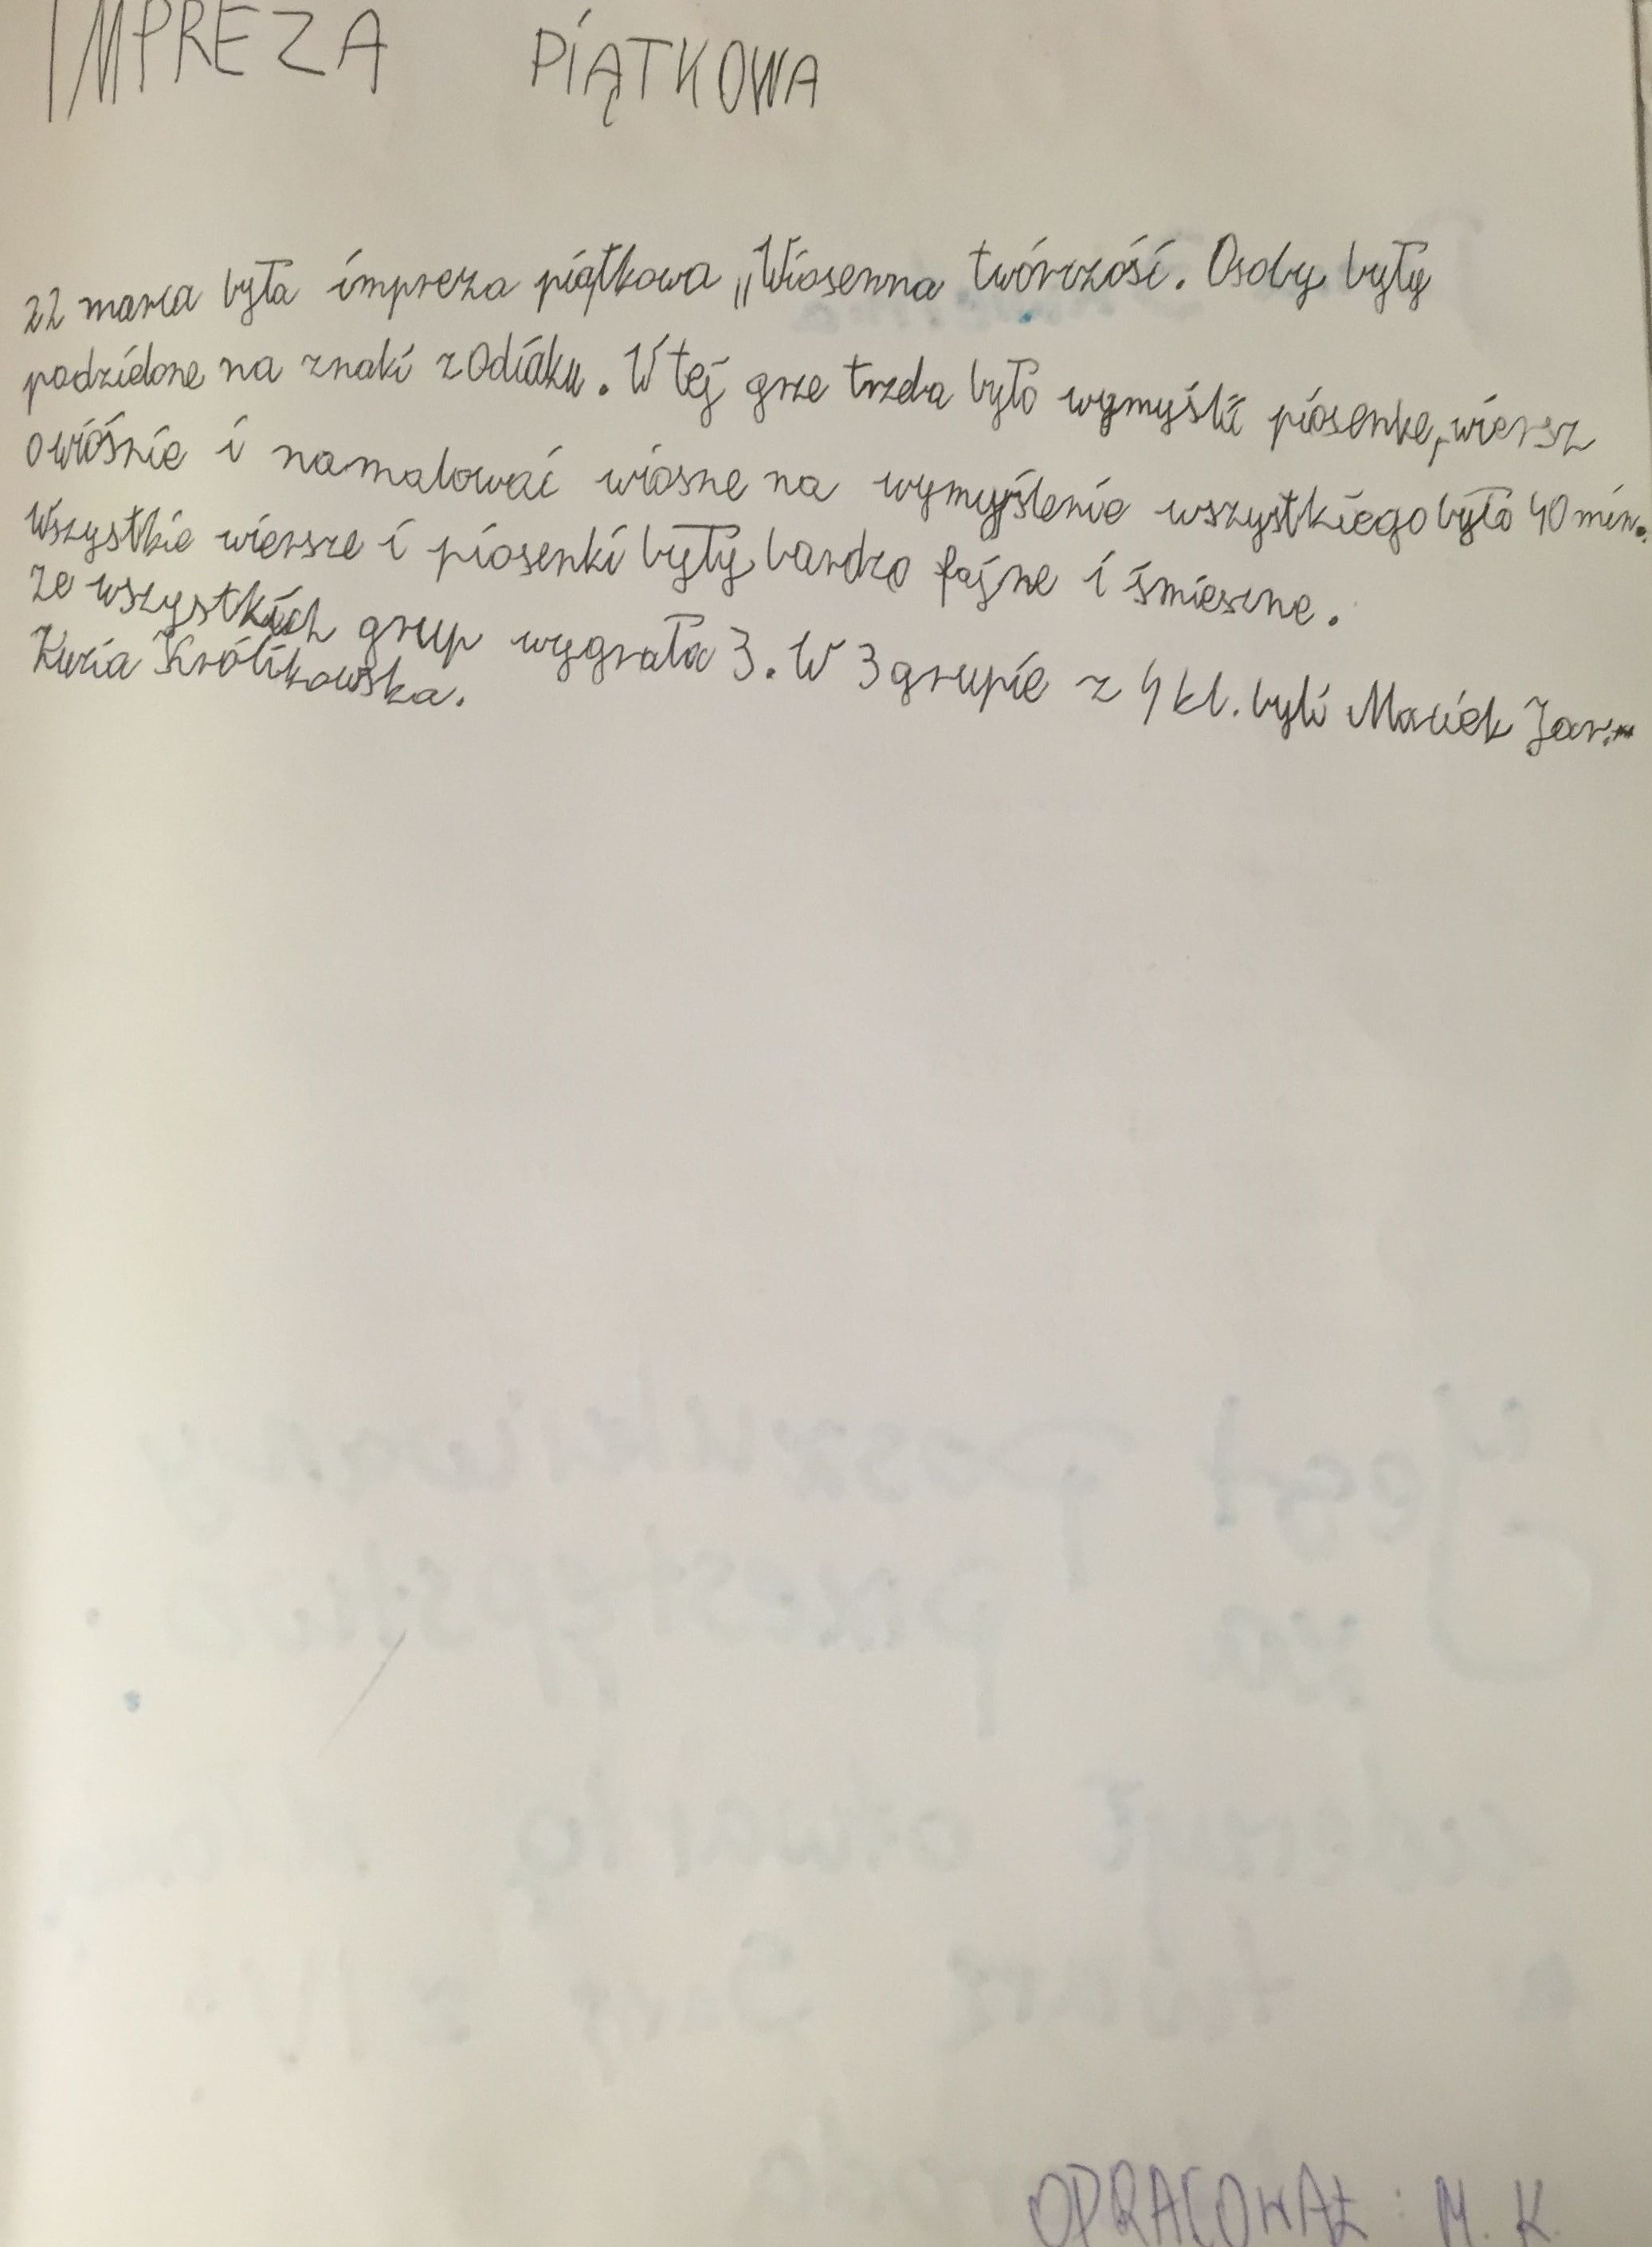 IMPREZA PIĄTKOWA
22 marca była impreza piątkowa „Wiosenna twórczość. Osoby były
podzielone na znaki zodiaku. W tej grze trzeba było wymyślić piosenkę, wiersz
o wiośnie i namalować wiosne na wymyślenie wszystkiego było 40 min.
Wszystkie wiersze i piosenki były bardzo fajne i śmieszne.
Ze wszystkich grup wygrała 3. W 3 grupie z 4 kl. byli Maciek Jar.
Kuzia Królikowska.
OPRACOWAŁ: M. K.